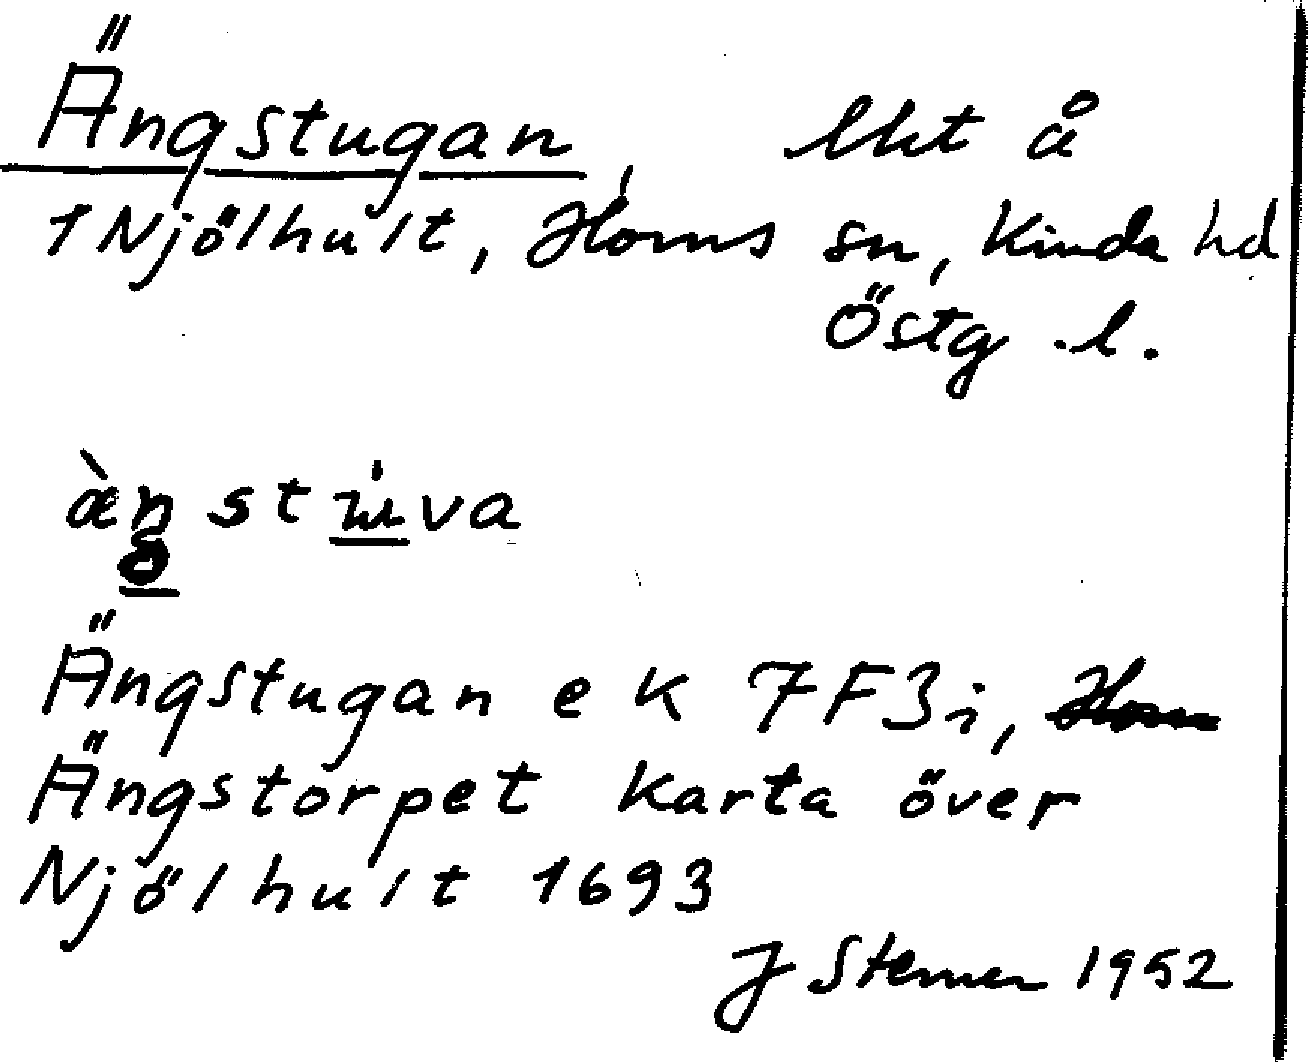 Ängstugan, lht å
1 Njölhult, Horns sn, Kinda hd
Östg.l.
Ängstugan e K 7F3i,
Ängstorpet Karta över
Njölhult 1693
J Sterner 1952